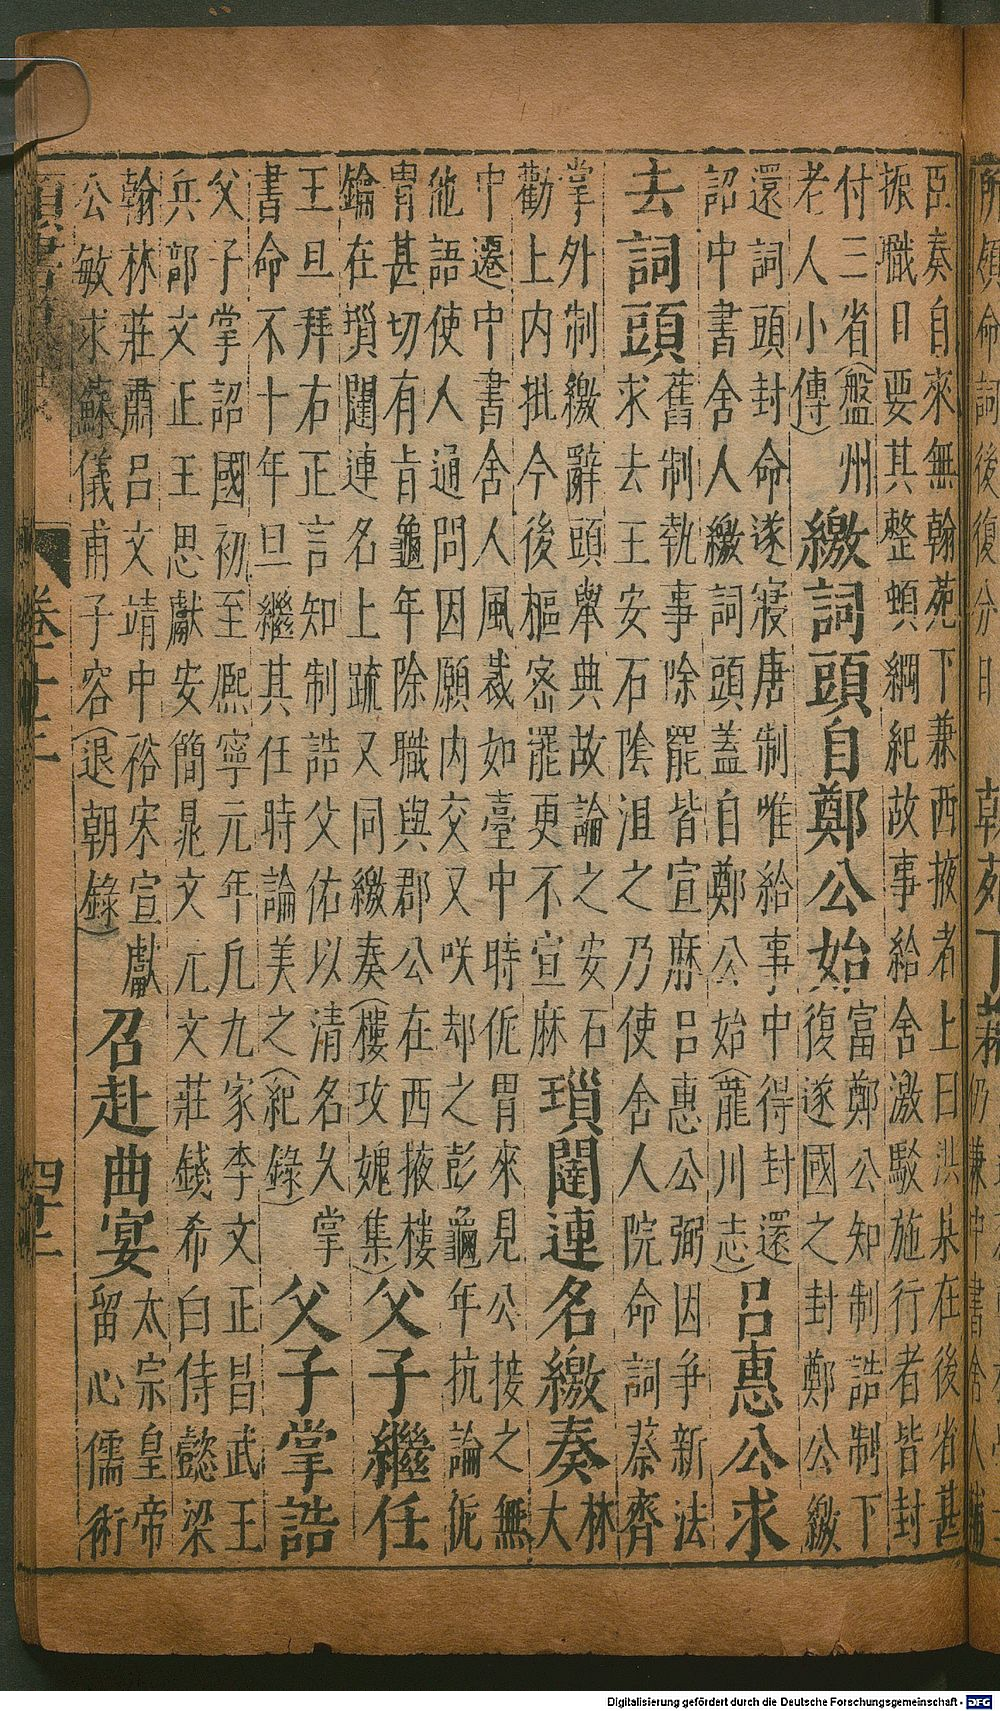 臣奏自來無翰苑下兼西掖者上曰洪某在後省甚
振職日要其整頓綱紀故事給舍激駮施行者皆封
付三省(盤州
老人小傳)
繳詞頭自鄭公始
富鄭公知制誥制下
復遂國之封鄭公繳
還詞頭封命遂寢唐制唯給事中得封還
詔中書舍人繳詞頭蓋自鄭公始(龍川志)
呂惠公求
去詞頭
舊制執事除罷皆宣麻呂惠公弼因爭新法
求去王安石陰沮之乃使舍人院命詞蔡齊
掌外制繳辭頭舉典故論之安石
勸上內批今後樞密罷更不宣麻
瑣闥連名繳奏
林
大
中遷中書舍人風裁如臺中時侂胄來見公接之無
他語使人通問因願內交又咲却之彭龜年抗論侂
胄甚切有旨龜年除職與郡公在西掖樓
鑰在瑣闥連名上疏又同繳奏(樓攻媿集)
父子繼任
王旦拜右正言知制誥父佑以清名久掌
書命不十年旦繼其任時論美之(紀錄)
父子掌誥
父子掌詔國初至熈寧元年凡九家李文正昌武王
兵部文正王思獻安簡晁文元文莊錢希白侍懿梁
翰林莊肅呂文靖中裕宋宣獻
公敏求蘇儀甫子容(退朝錄)
召赴曲宴
太宗皇帝
留心儒術
Digitalisierung gefördert durch die Deutsche Forschungsgemeinschaft - DFG